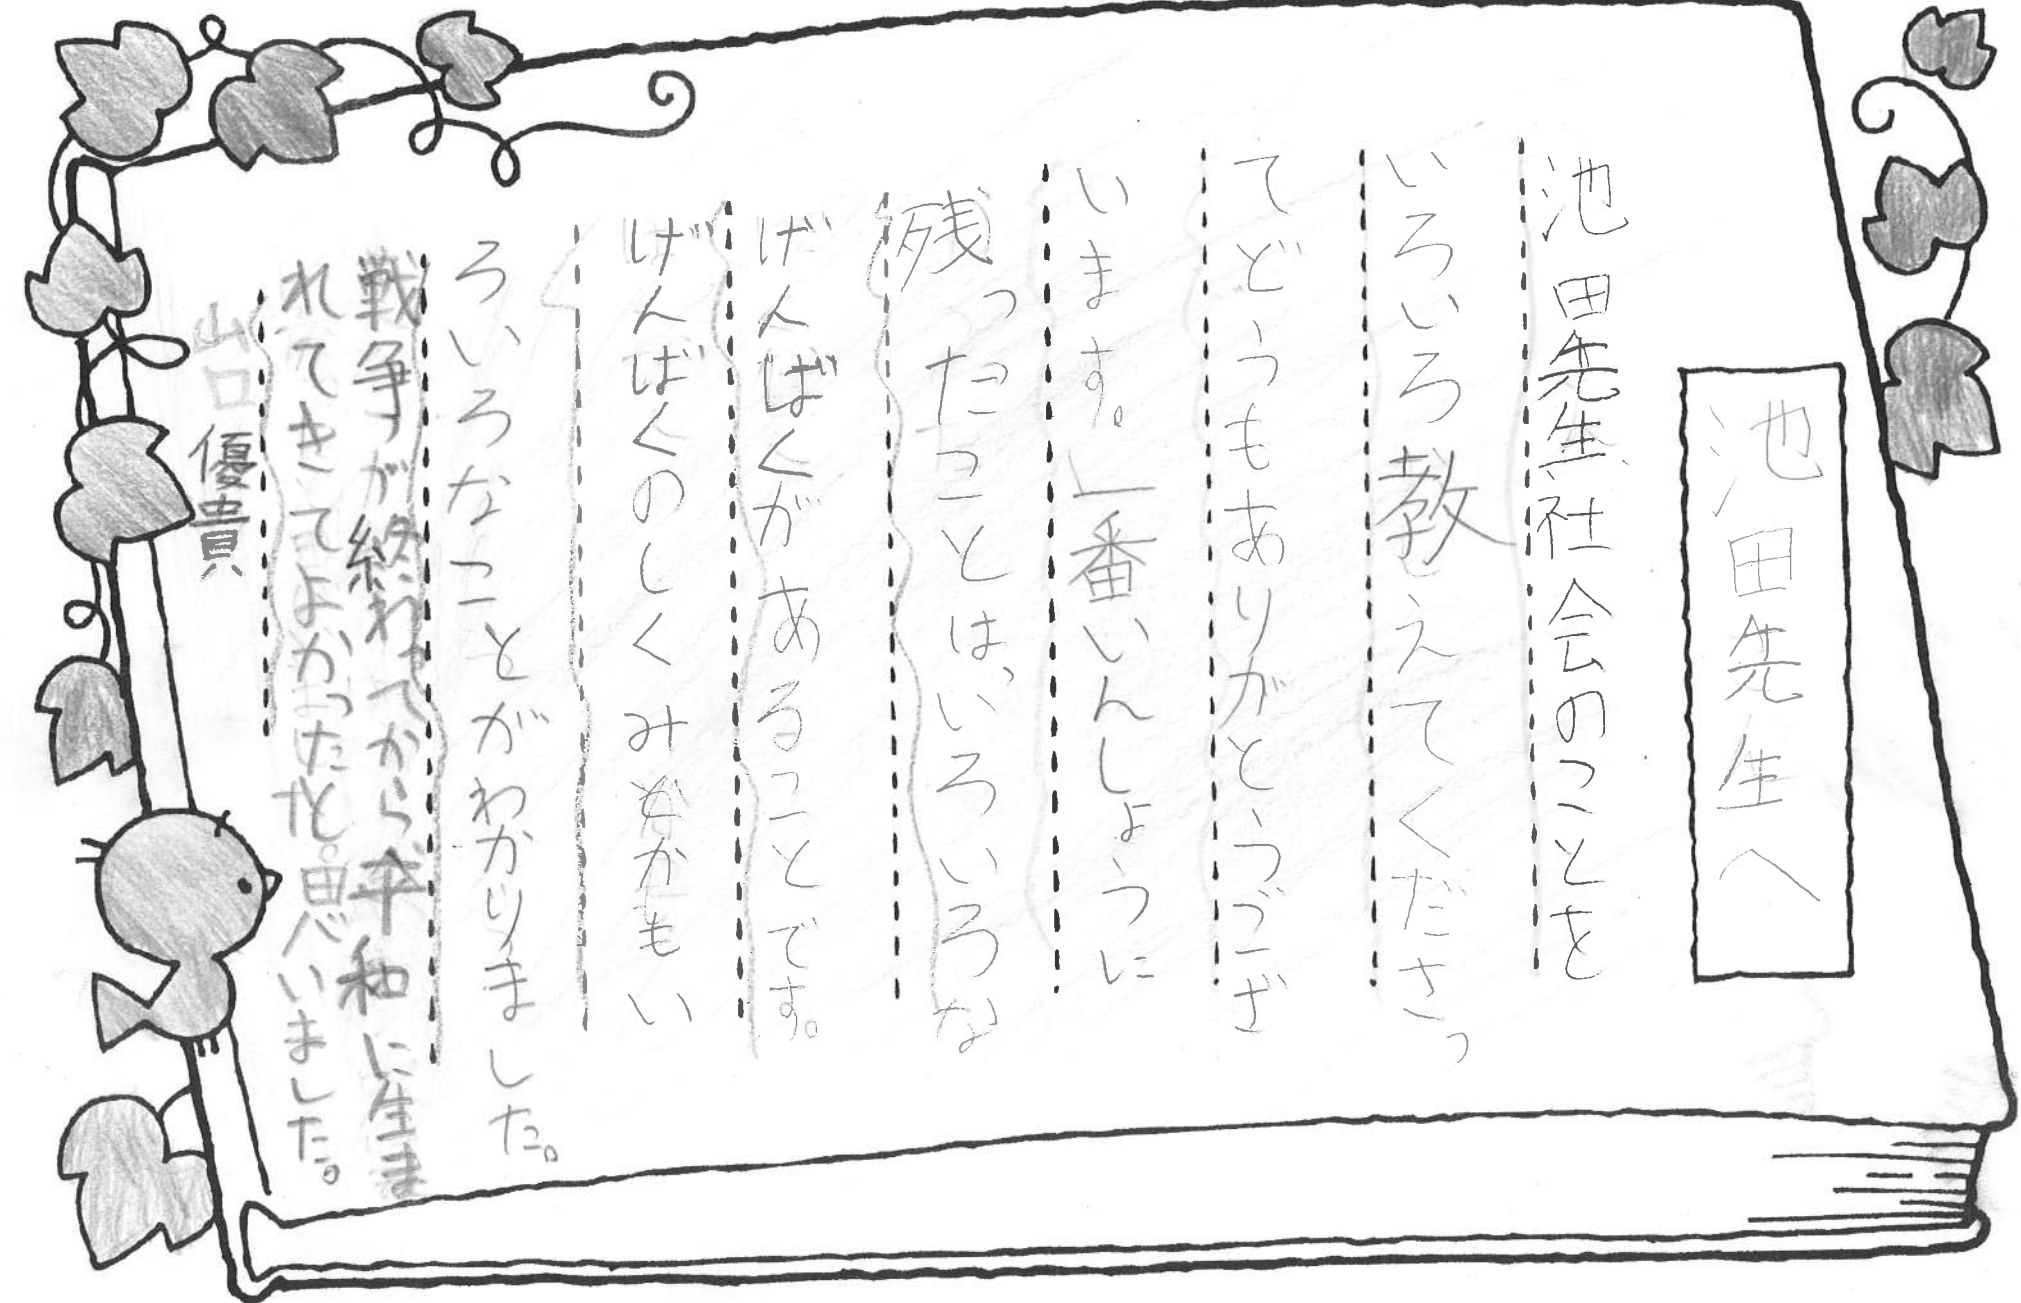 池田先生へ
池田先生社会のことを
いろいろ教えてくださっ
てどうもありがとうござ
います。一番いんしょうに
残ったことは、いろいろな
げんばくがあることです。
げんばくのしくみとかもい
ろいろなことがわかりました。
戦争が終わってから平和に生ま
れてきてよかったなと思いました。
山口優貴